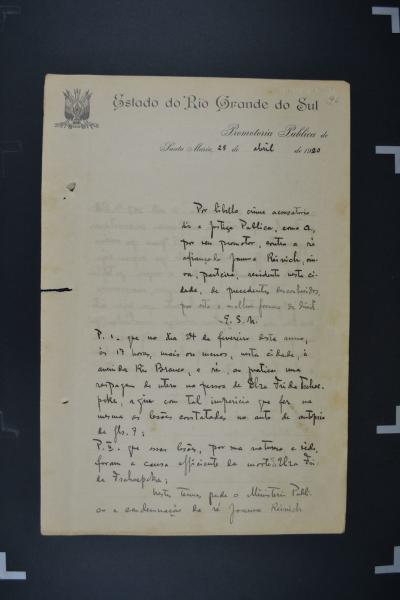 Estado do Rio Grande do Sul
Promotoria Publica de
Santa Maria, 28 de abril de 1920
Por libello crime accusatorio
diz a Justiça Publica, como A,
por seu promotor, contra a ré
afiançada Joanna Reinich,
parteira, residente nesta ci-
dade, de precedentes desconhecidos,
por esta e melhor forma de direito
E. S. N.
P. 1. que no dia 24 de fevereiro deste anno,
ás 17 horas, mais ou menos, nesta cidade, á
avenida Rio Branco, a ré, ao praticar uma
raspagem de utero na pessoa de Elza Frida Tschoe-
peke, agiu com tal impericia que fez na
mesma as lesões constatadas no auto de autopsia
de fls. 7;
P. 2. que essas lesões, por sua natureza e séde,
foram a causa efficiente da morte de Elza Fri-
da Tschoepeke;
Nestes termos pede o Ministerio Publi-
co a condemnação da ré Joanna Reinich